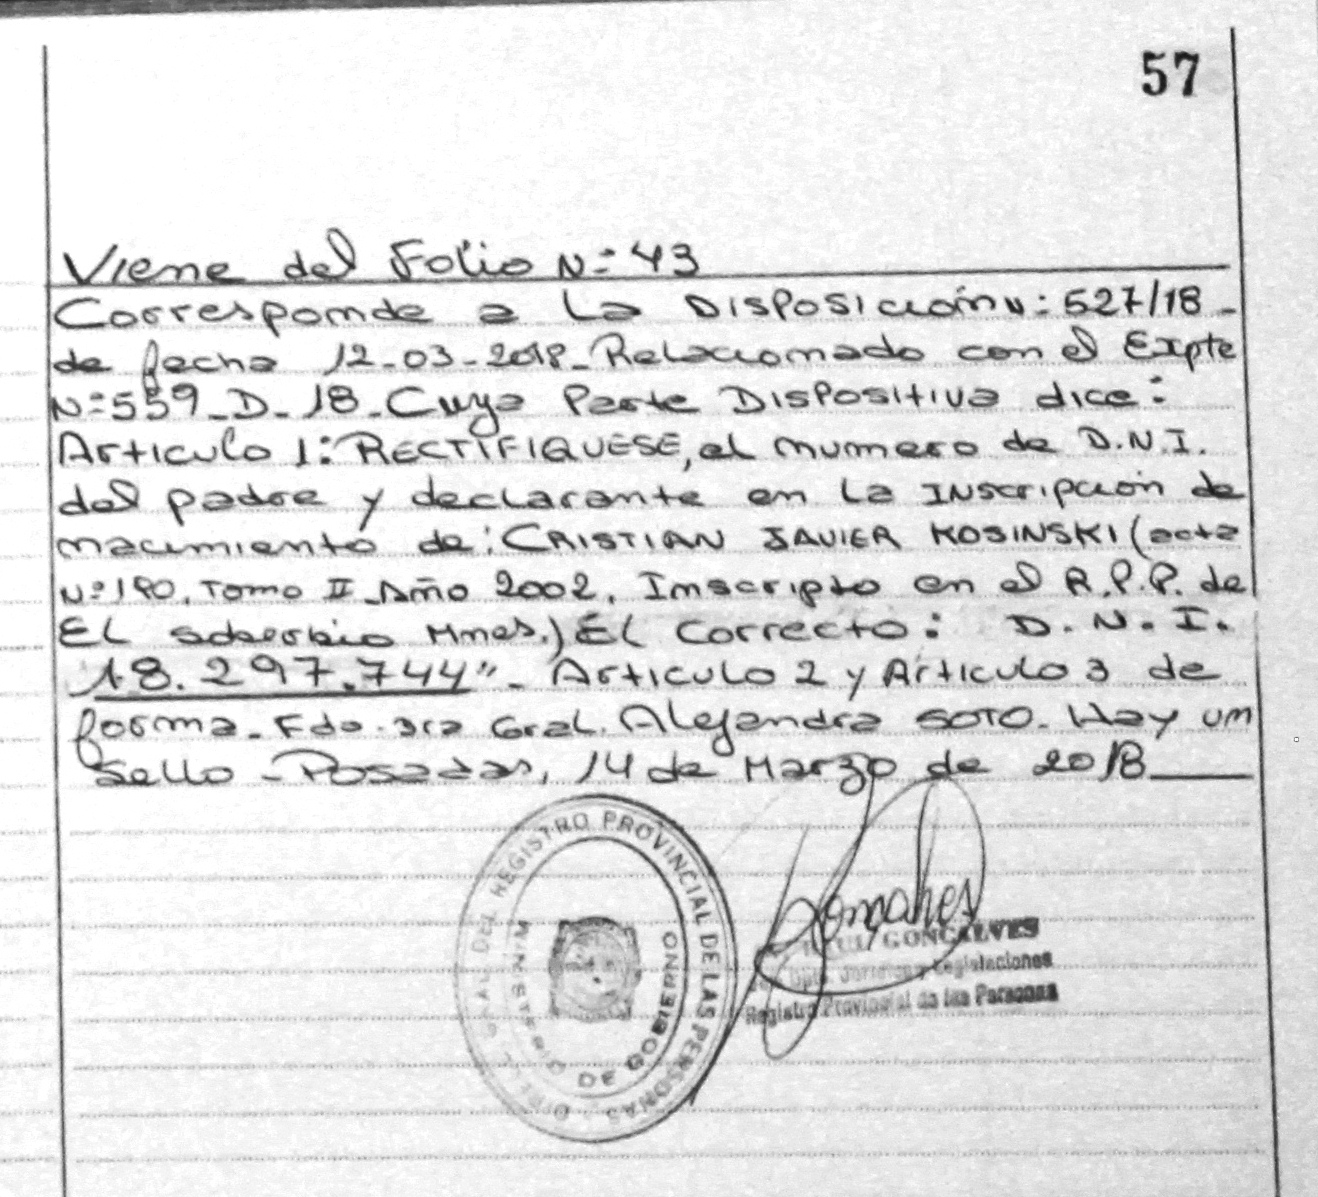 57
Viene del Folio N: 43
Corresponde a La DISPOSICIÓN N: 527/18-
de fecha 12-03-2018- Relacionado con el Expte
N: 559-D-18- Cuya Parte DISPOSITIVA dice:
Articulo 1: RECTIFIQUESE, el numero de D.N.I.
del padre y declarante en La INSCRIPCIÓN de
nacimiento de: CRISTIAN JAVIER KOSINSKI (acta
N: 190, Tomo II Año 2002, Inscripto en el R.P.P. de
EL Soberbio Mnes.) EL Correcto: D.N.I.
18.297.744"- Articulo 2 y Articulo 3 de
forma- Fdo. Dra Gral. Alejandra SOTO- Hay um
Sello -Posadas, 14 de Marzo de 2018
REGISTRO PROVINCIAL DE LAS PERSONAS
MINISTERIO DE GOBIERNO
GONCALVES
Dpto. Jurídico y Legislaciones
Registro Provincial de las Personas